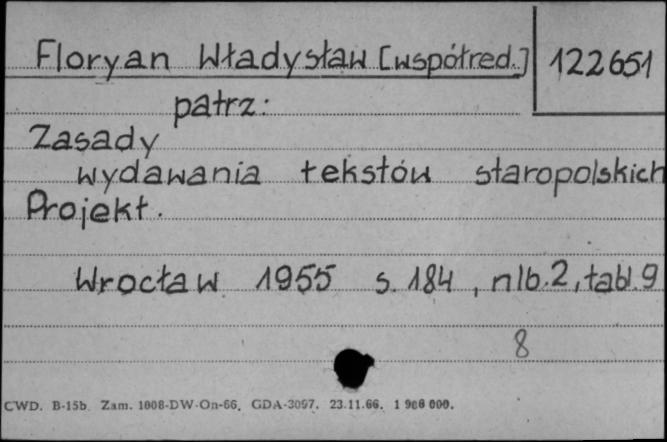 Floryan Władysław [współred.] 122651
patrz:
Zasady
wydawania tekstów staropolskich
Projekt.
Wrocław 1955 s. 184, nlb. 2, tabl. 9
8
CWD. B-15b. Zam. 1008-DW-On-66. GDA-3097. 23.11.66. 1 906 000.